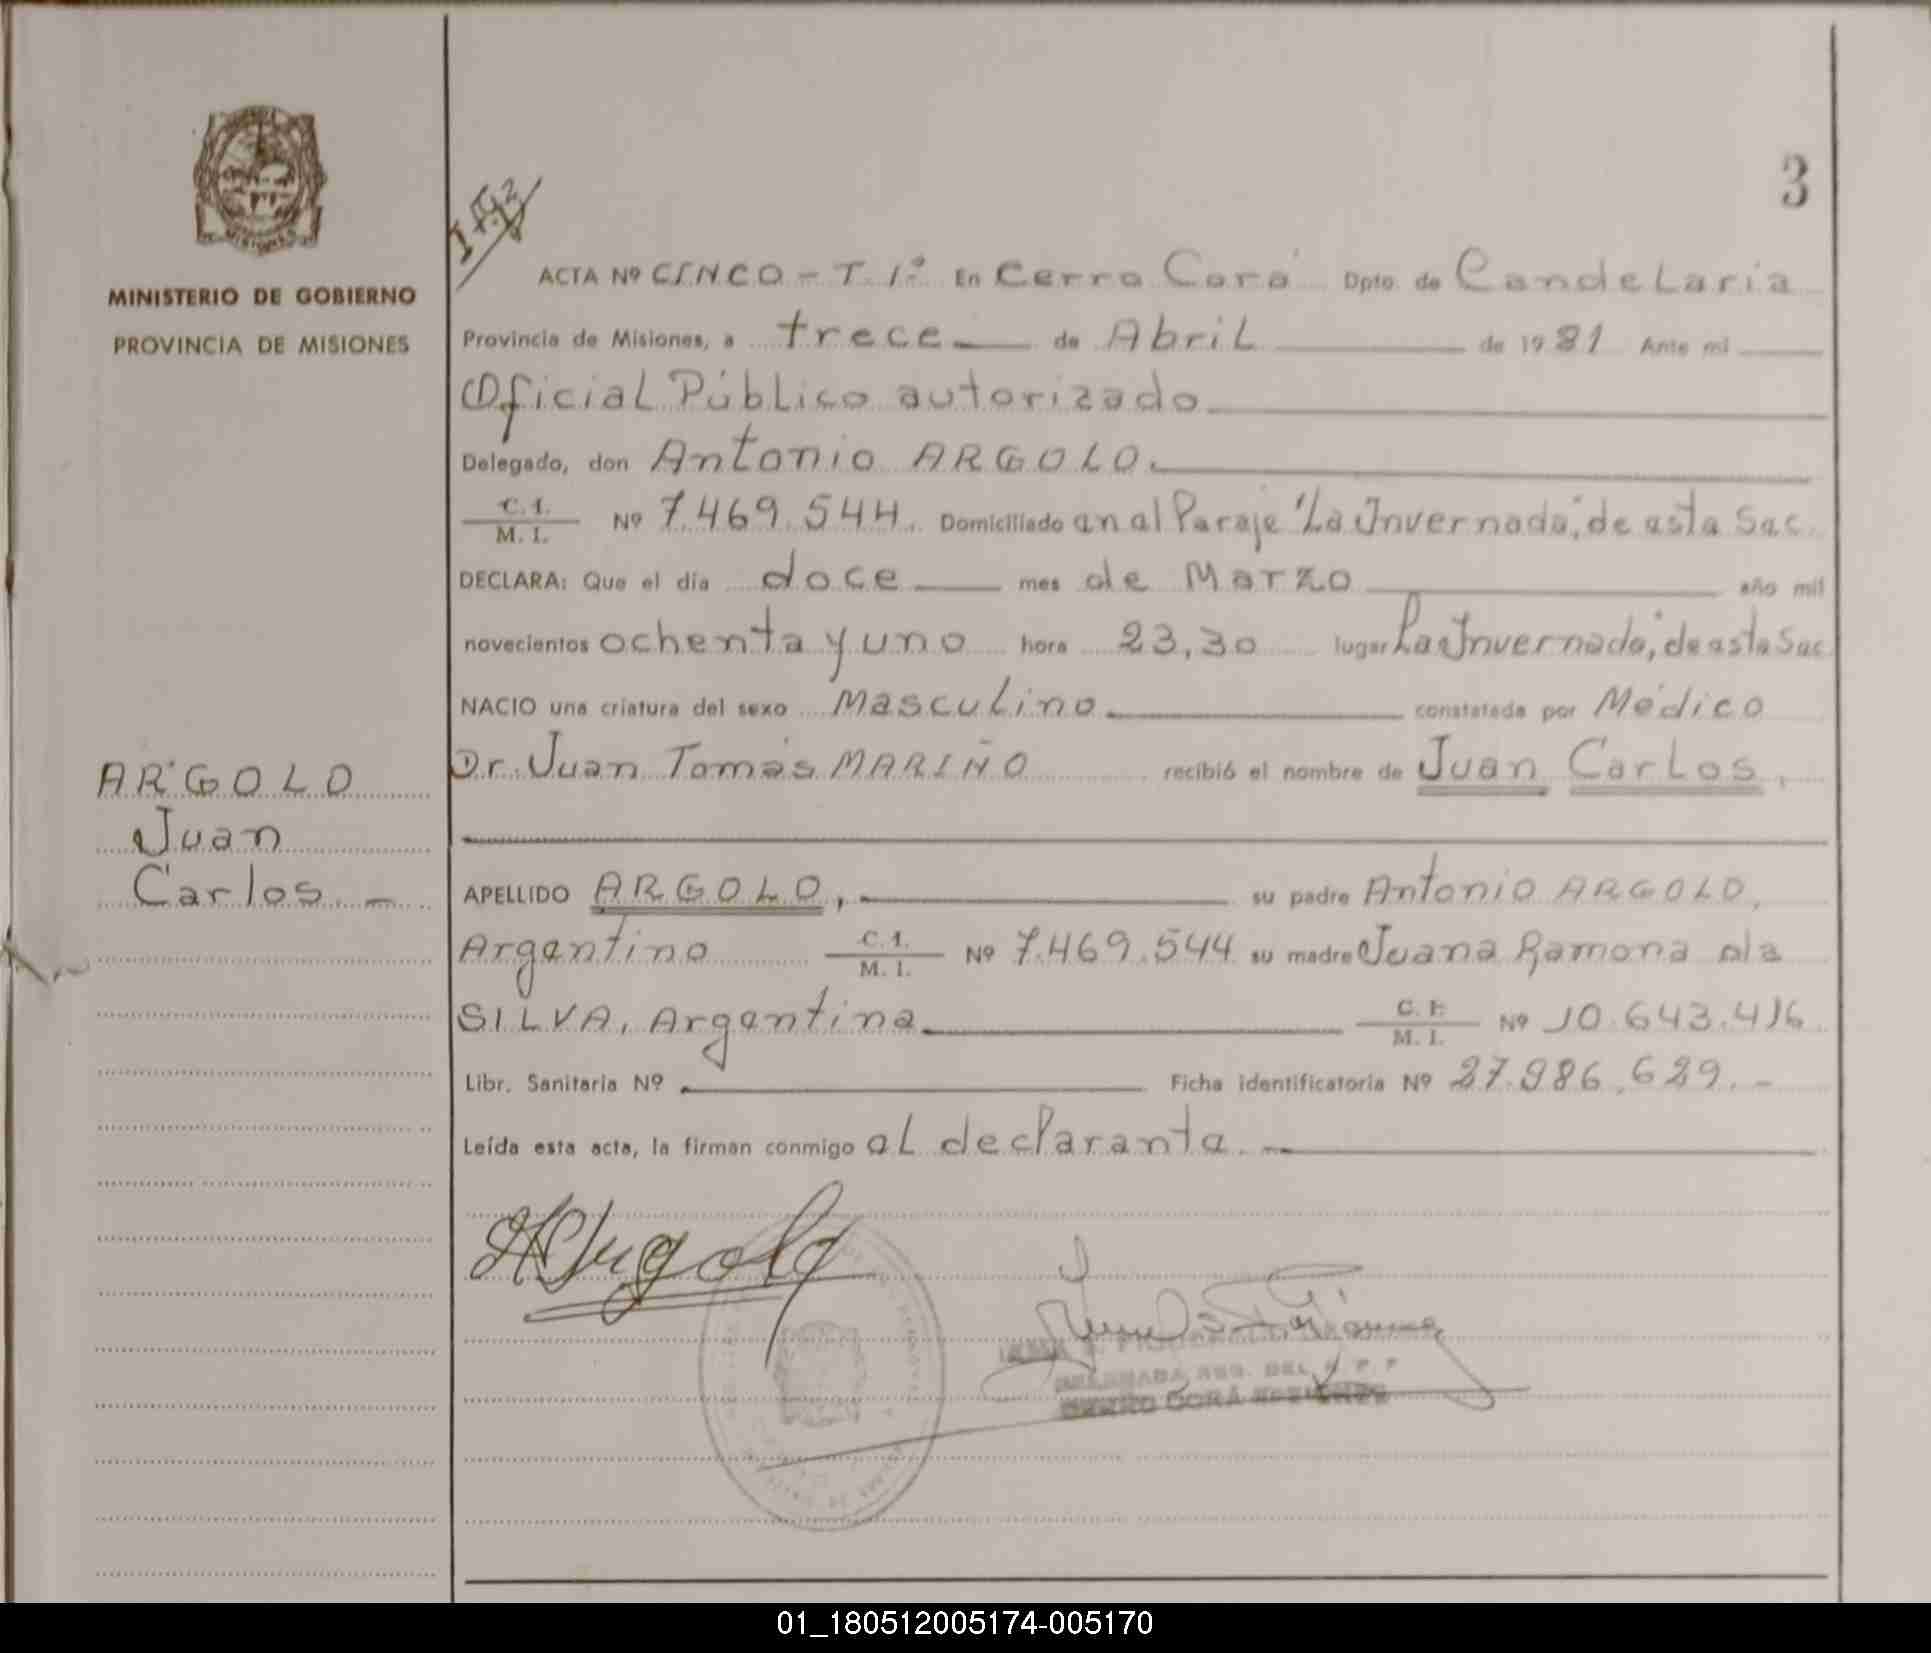 3
MISIONES
MINISTERIO DE GOBIERNO
PROVINCIA DE MISIONES
ARGOLO
Juan
Carlos. -
ACTA Nº CINCO - T. 1º En Cerro Corá Dpto. de Candelaria
Provincia de Misiones, a trece de Abril de 1981 Ante mi
Oficial Público autorizado
Delegado, don Antonio ARGOLO.
C. I. / M. I. Nº 7.469.544. Domiciliado en el Paraje "La Invernada", de esta Sec.
DECLARA: Que el día doce mes de Marzo año mil
novecientos ochenta y uno hora 23,30 lugar "La Invernada", de esta Sec
NACIO una criatura del sexo Masculino. constatada por Médico
Dr. Juan Tomás MARIÑO recibió el nombre de Juan Carlos,
APELLIDO ARGOLO, su padre Antonio ARGOLO,
Argentino C. I. / M. I. Nº 7.469.544 su madre Juana Ramona da
SILVA, Argentina. C. I. / M. I. Nº 10.643.416
Libr. Sanitaria Nº Ficha identificatoria Nº 27.986.629. -
Leída esta acta, la firman conmigo el declarante. -
Argolo
DELEGADA REG. DEL
CERRO CORÁ MISIONES
01_180512005174-005170